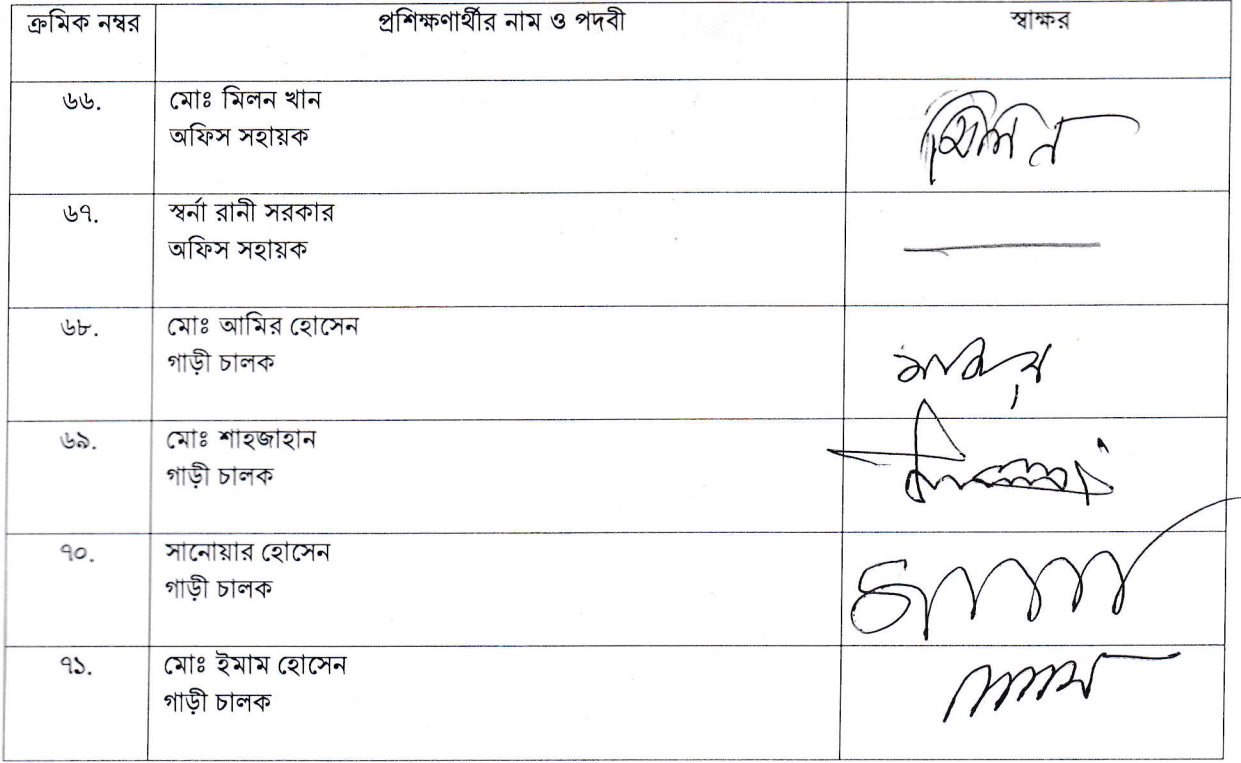 ক্রমিক নম্বর প্রশিক্ষণার্থীর নাম ও পদবী স্বাক্ষর
৬৬. মোঃ মিলন খান
অফিস সহায়ক
মিলন
৬৭. স্বর্না রানী সরকার
অফিস সহায়ক
৬৮. মোঃ আমির হোসেন
গাড়ী চালক
৬৯. মোঃ শাহজাহান
গাড়ী চালক
৭০. সানোয়ার হোসেন
গাড়ী চালক
৭১. মোঃ ইমাম হোসেন
গাড়ী চালক